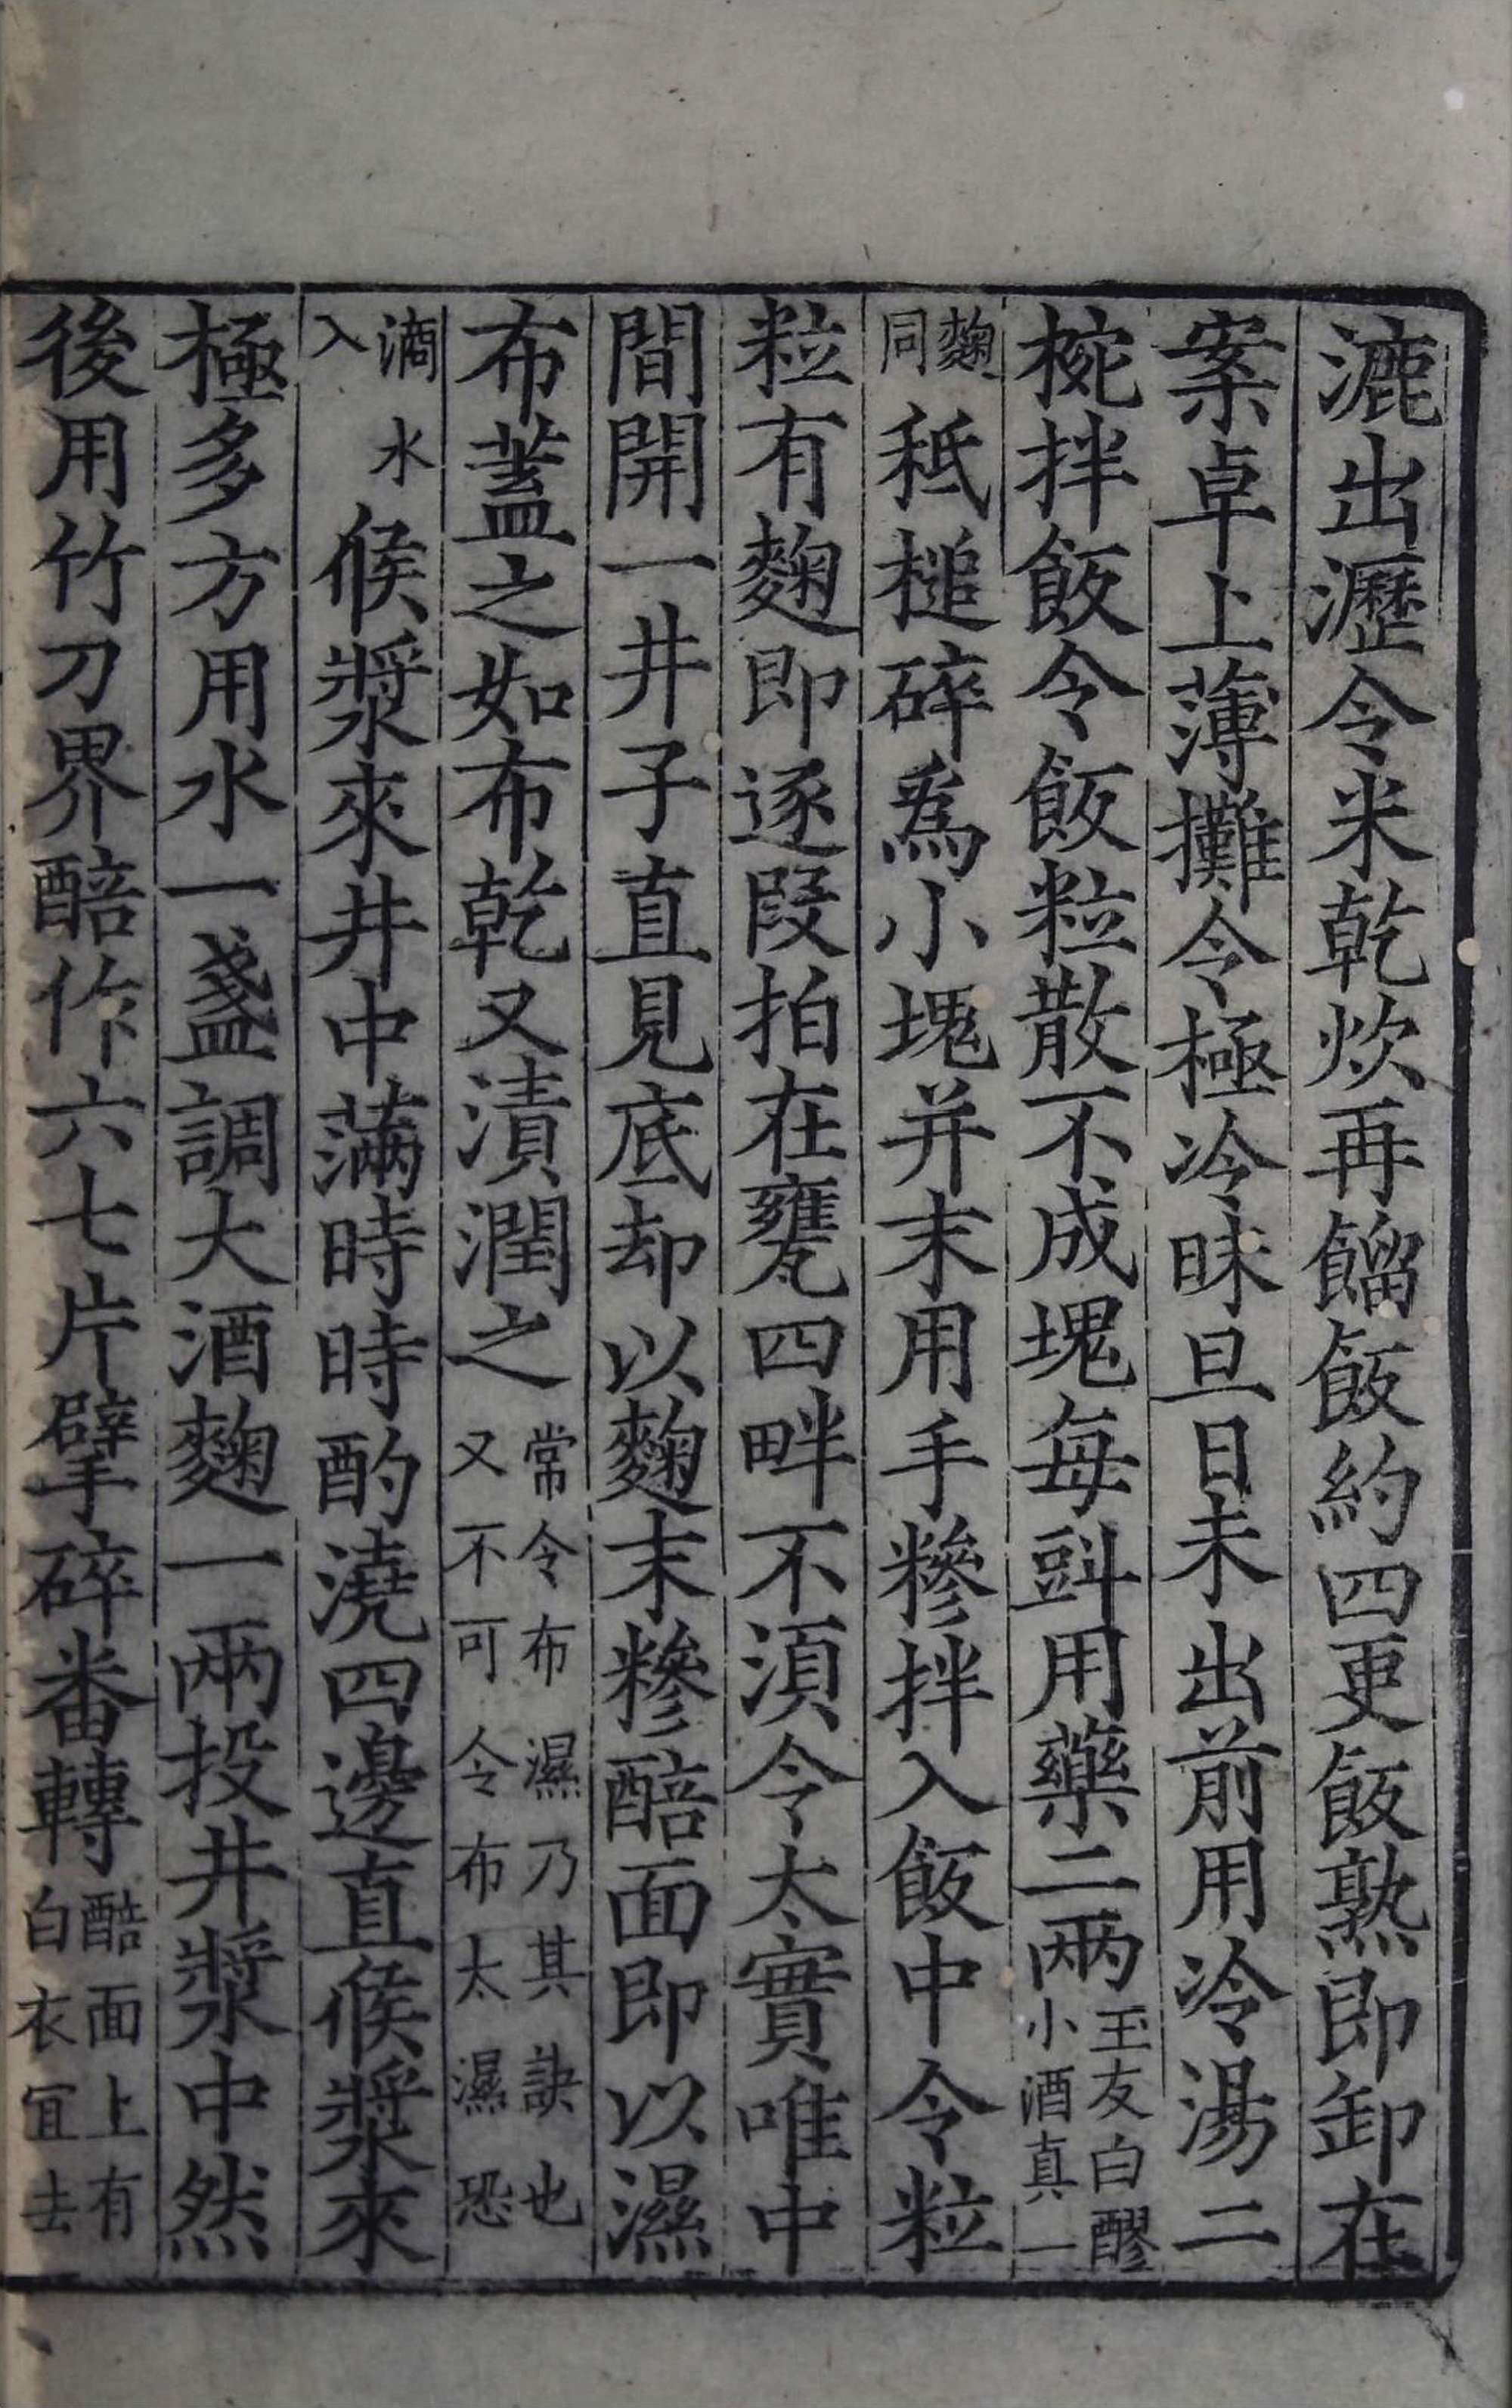 漉出瀝令米乾炊再餾飯約四更飯熟即卸在
案卓上薄攤令極冷昧旦日未出前用冷湯二
椀拌飯令飯粒散不成塊每㪷用藥二兩玉友白醪小酒真一
麴同秪槌碎爲小塊并末用手糝拌入飯中令粒
粒有麴即逐段拍在甕四畔不須令太實唯中
間開一井子直見底却以麴末糝醅面即以濕
布蓋之如布乾又漬潤之常令布濕乃其訣也又不可令布太濕恐
滴水入候漿來井中滿時時酌澆四邊直候漿來
極多方用水一盞調大酒麴一兩投井漿中然
後用竹刀界醅作六七片擘碎番轉醅面上有白衣宜去